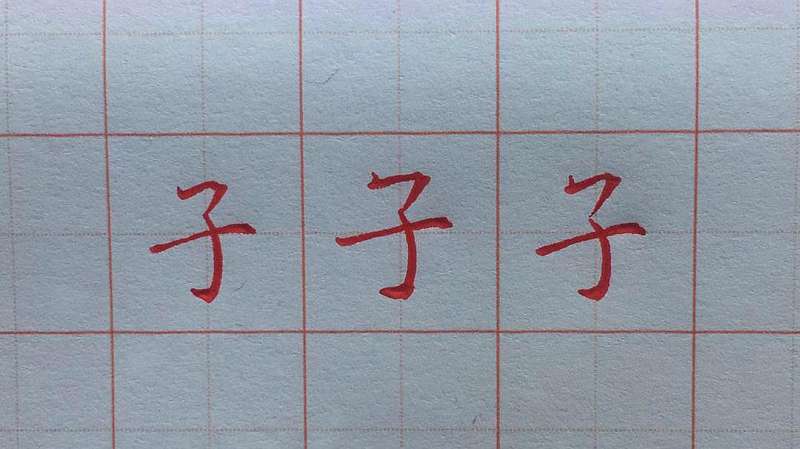 子子子